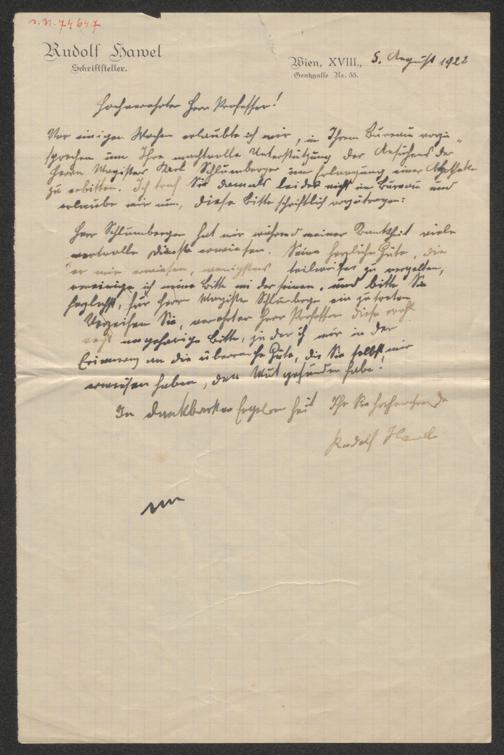 I.N. 74647
Rudolf Hawel
Schriftsteller.
Wien, XVIII., 5. August 1922
Gentzgasse No.
Hochverehrter Herr Professor!
Vor einigen Wochen erlaubte ich mir, in Ihrem Bureau vorzu-
sprechen um Ihre machtvolle Unterstützung des Ansuchens des
Herrn Magister Karl Schlumberger um Erlangung einer Apotheke
zu erbitten. Ich traf Sie damals leider nicht im Bureau und
erlaube mir nun, diese Bitte schriftlich vorzutragen:
Herr Schlumberger hat mir während meiner Krankheit viele
wertvolle Dienste erwiesen. Seine herzliche Güte, die
er mir erwiesen, wenigstens teilweise zu vergelten,
vereinige ich meine Bitte mit der seinen, und bitte Sie
herzlichst, für Herrn Magister Schlumberger einzutreten.
Verzeihen Sie, verehrter Herr Professor diese
Bitte, zu der ich mir in der
Erinnerung an die Güte, die Sie selbst mir
erwiesen haben, den Mut gefunden habe.
In dankbarster Ergebenheit Ihr Sie hochverehrender
Rudolf Hawel